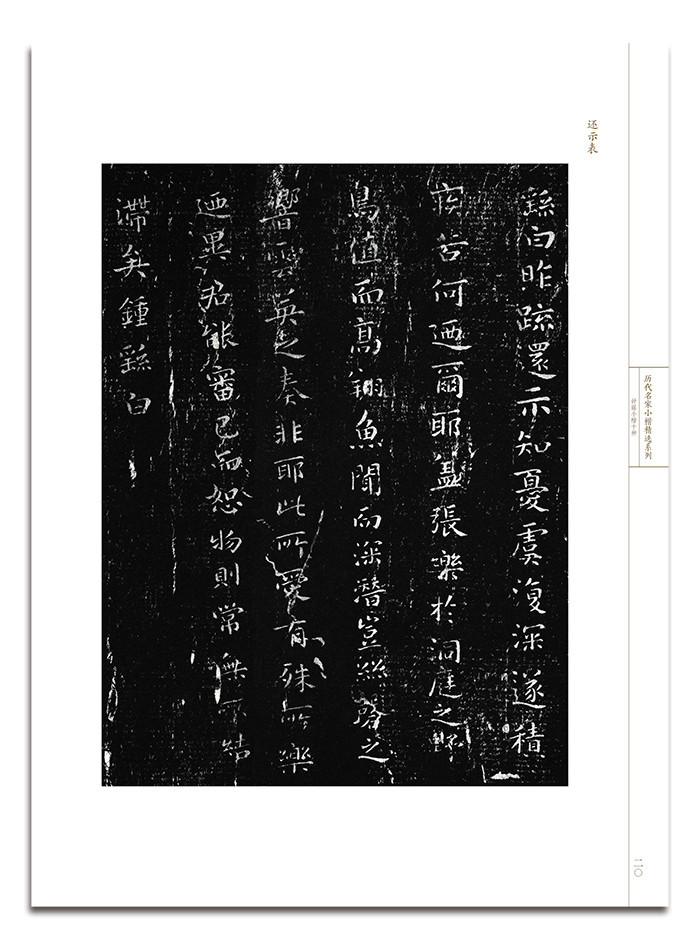 还示表
繇白昨疏還示知憂虞復深遂積
疾苦何迺爾耶蓋張樂於洞庭之野
鳥值而高翔魚聞而深潛豈絲磬之
響雲英之奏非耶此所愛有殊所樂
迺異君能審己而恕物則常無所結
滯矣鍾繇白
历代名家小楷精选系列
钟繇小楷十种
二〇